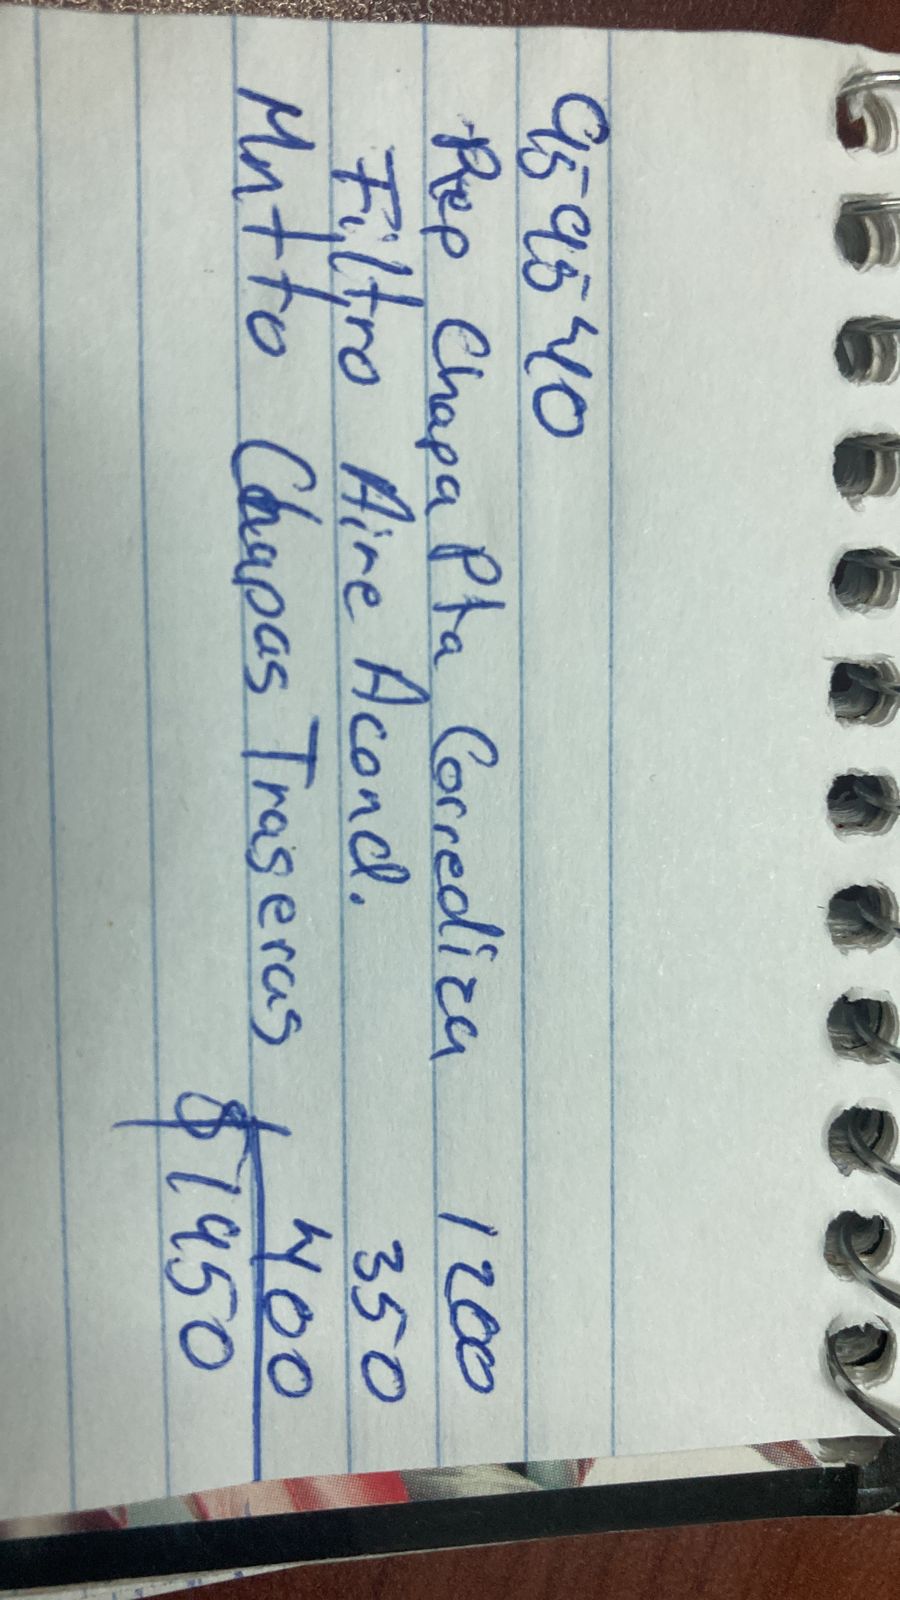 959540
Rep Chapa Pta Corrediza 1200
Filtro Aire Acond. 350
Mntto Chapas Traseras 400
$1950